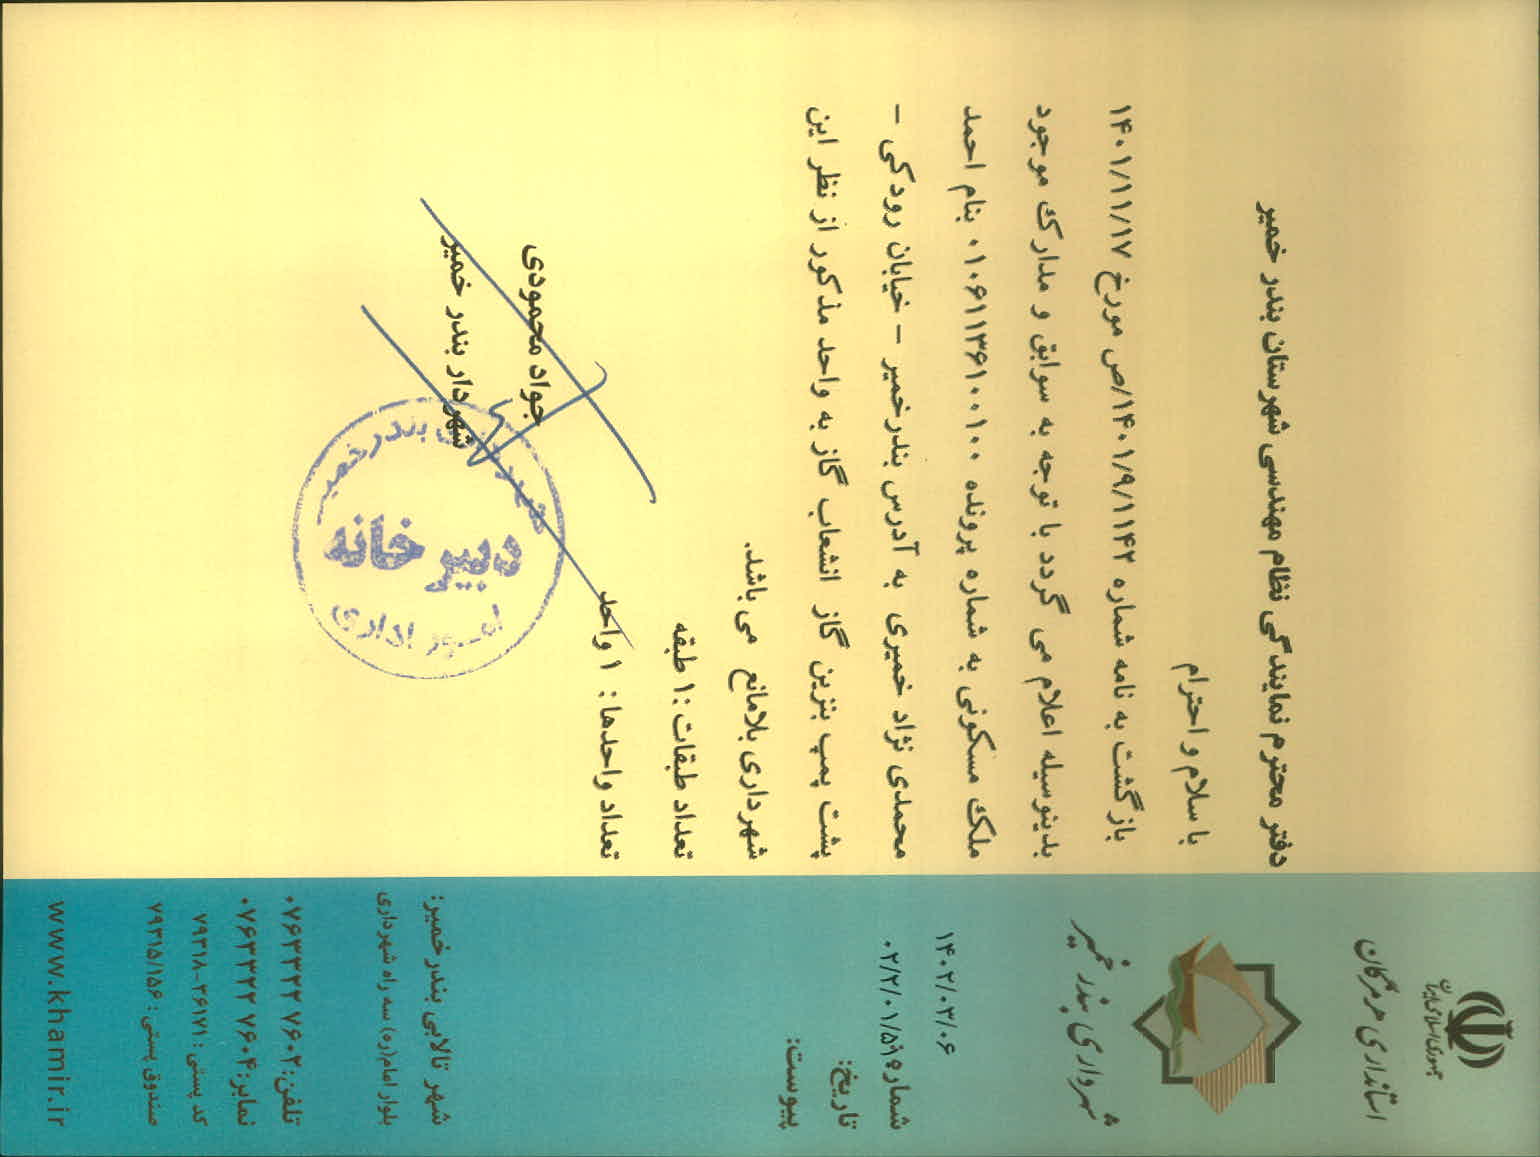 جمهوری اسلامی ایران
استانداری هرمزگان
شهرداری بندر خمیر
۱۴۰۲/۰۳/۰۶
شماره ۰۲/۲/۰۱/۵۱۹
تاریخ:
پیوست:
دفتر محترم نمایندگی نظام مهندسی شهرستان بندر خمیر
با سلام و احترام
بازگشت به نامه شماره ۱۴۰۱/۹/۱۱۴۲/ص مورخ ۱۴۰۱/۱۱/۱۷
بدینوسیله اعلام می گردد با توجه به سوابق و مدارک موجود
ملک مسکونی به شماره پرونده ۰۱۰۶۱۱۳۶۱۰۰۱۰۰ بنام احمد
محمدی نژاد خمیری به آدرس بندرخمیر - خیابان رودکی -
پشت پمپ بنزین گاز انشعاب گاز به واحد مذکور از نظر این
شهرداری بلامانع می باشد.
تعداد طبقات :۱ طبقه
تعداد واحدها : ۱ واحد
جواد محمودی
شهردار بندر خمیر
شهرداری بندر خمیر
دبیرخانه
امور اداری
شهر تالابی بندر خمیر:
بلوار امام(ره) سه راه شهرداری
تلفن: ۰۷۶۳۳۲۲ ۷۶۰۲
نمابر: ۰۷۶۳۳۲۲ ۷۶۰۴
کد پستی : ۲۶۱۷۱-۷۹۳۱۸
صندوق پستی : ۷۹۳۱۵/۱۵۶
www.khamir.ir